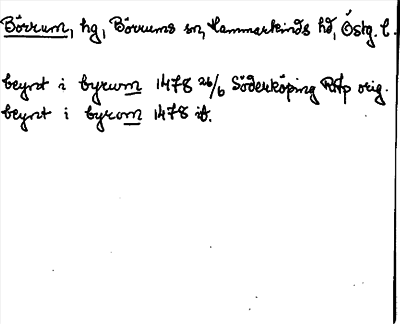 Börrum, hg, Börrums sn, Hammarkinds hd, Östg. l.
beynt i byrum 1478 26/6 Söderköping RAp orig.
beynt i byrom 1478 ib.